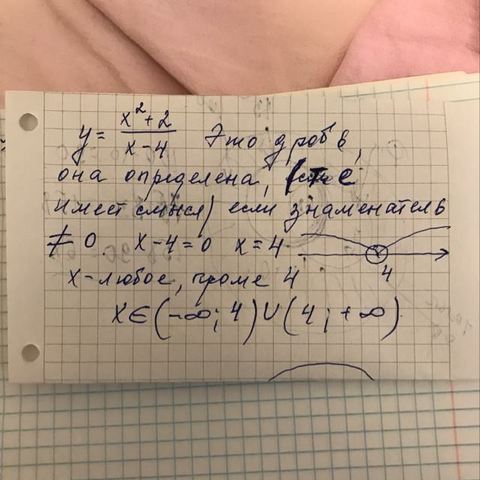 y = (x² + 2)/(x - 4) Это дробь,
она определена, (т е
имеет смысл) если знаменатель
≠ 0 x - 4 = 0 x = 4
4
x - любое, кроме 4
x ∈ (-∞; 4) ∪ (4; +∞).